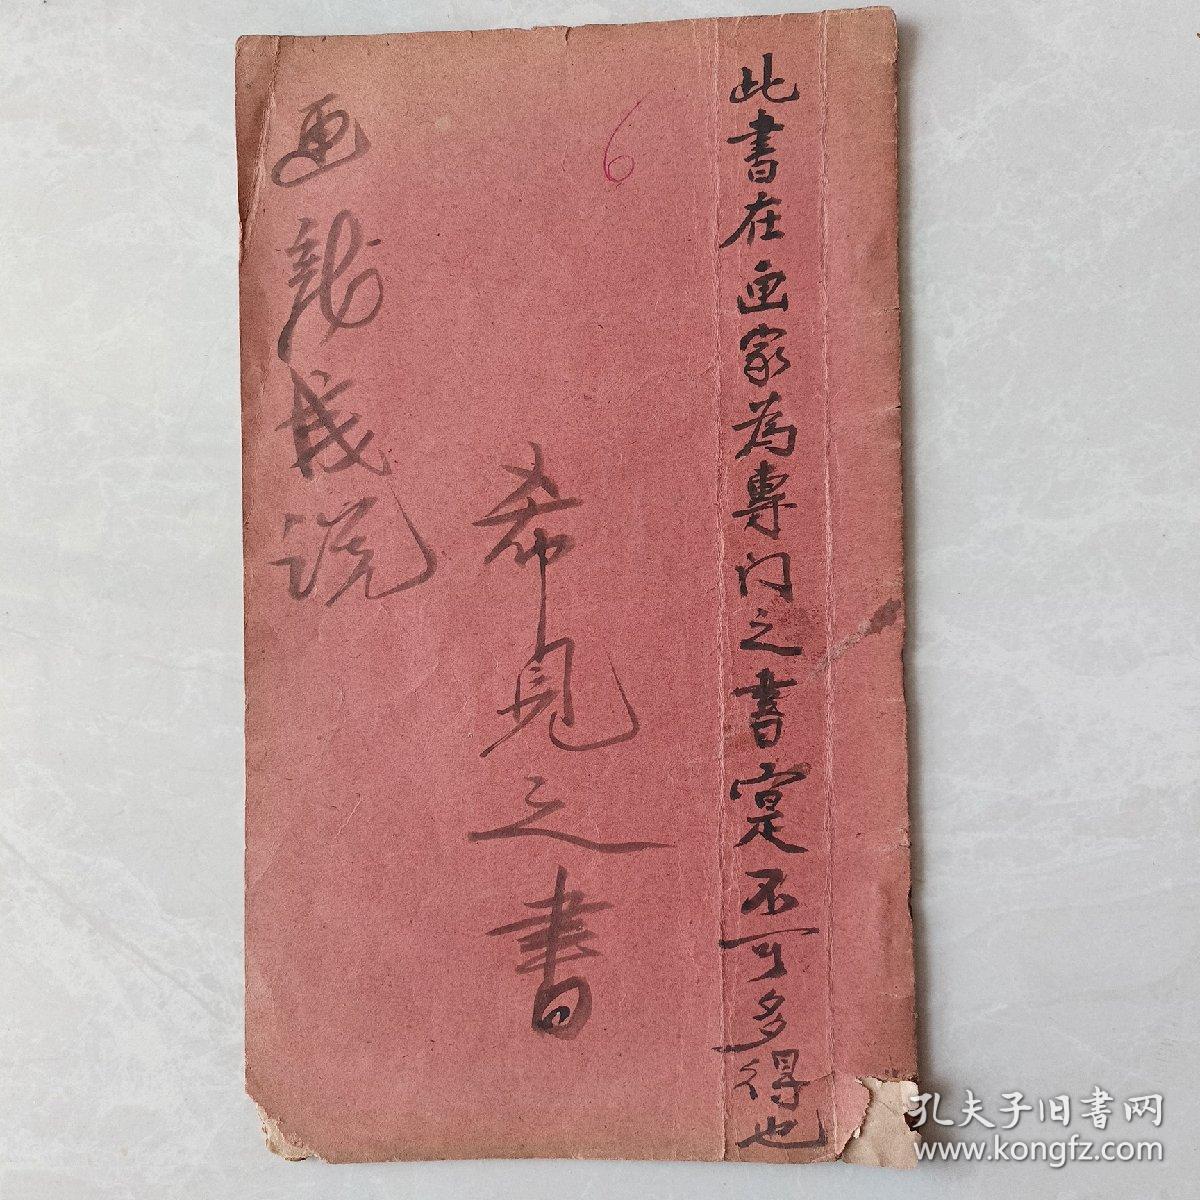 此書在画家為專门之書寔不可多得也
6
希見之書
画龍我说
孔夫子旧書网
www.kongfz.com